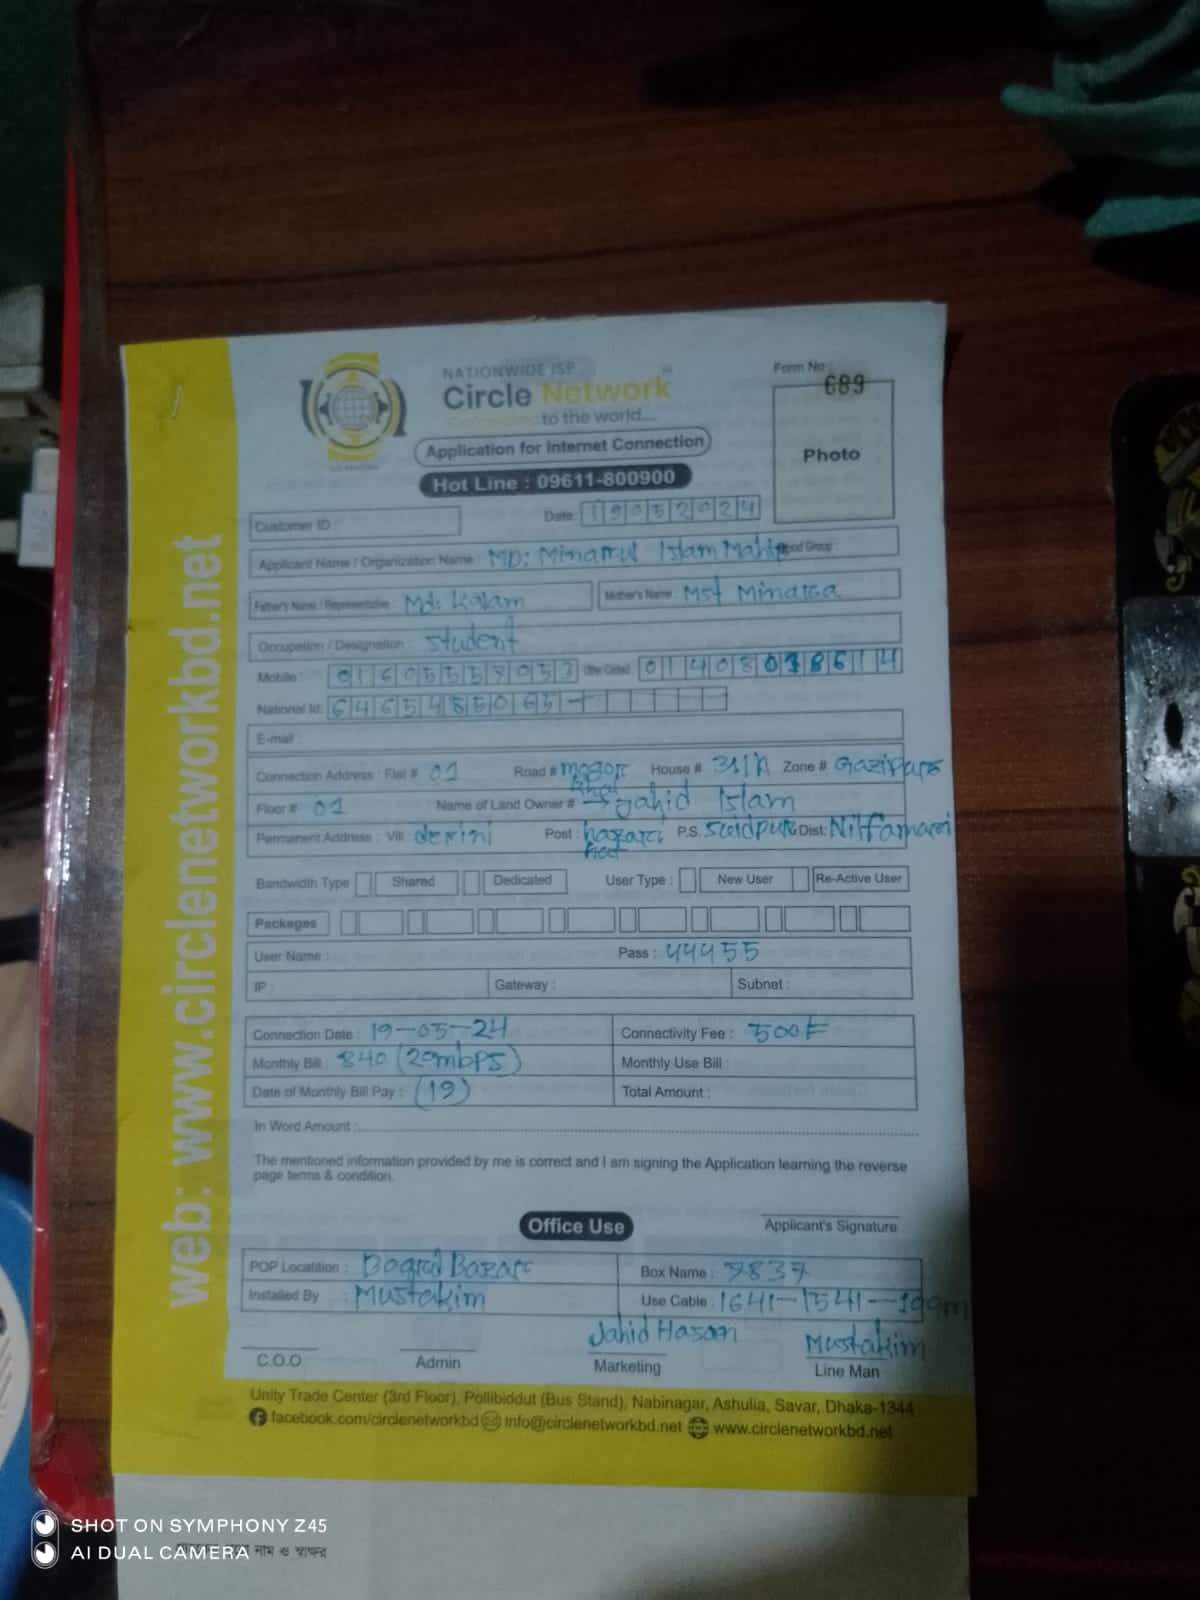 NATIONWIDE ISP
Circle Network
to the world...
Form No : 689
Application for Internet Connection
Photo
Hot Line : 09611-800900
Customer ID :
Date: 19052024
Applicant Name / Organization Name : MD: Minarul Islam Blood Group :
Father's Name / Representative : Md: Kalam Mother's Name : Mst Minara
Occupation / Designation : Student
Mobile :
National Id:
E-mail :
Connection Address : Flat # 01 Road # House # Zone # Gazipura
Floor # 01 Name of Land Owner # → Jahid Islam
Permanent Address : Vill: Post : P.S. Dist:
Bandwidth Type Shared Dedicated User Type : New User Re-Active User
Packeges
User Name : Pass : 44455
IP : Gateway : Subnet :
Connection Date : 19-05-24 Connectivity Fee :
Monthly Bill : 840 (20mbps) Monthly Use Bill :
Date of Monthly Bill Pay : (19) Total Amount :
In Word Amount :
The mentioned information provided by me is correct and I am signing the Application learning the reverse
page terms & condition.
Office Use
Applicant's Signature
POP Localition : Box Name : 7837
Installed By : Mustakim Use Cable : 1641-1541-100m
Jahid Hasan Mustakim
C.O.O Admin Marketing Line Man
Unity Trade Center (3rd Floor), Pollibiddut (Bus Stand), Nabinagar, Ashulia, Savar, Dhaka-1344
facebook.com/circlenetworkbd info@circlenetworkbd.net www.circlenetworkbd.net
web: www.circlenetworkbd.net
SHOT ON SYMPHONY Z45
AI DUAL CAMERA
নাম ও স্বাক্ষর